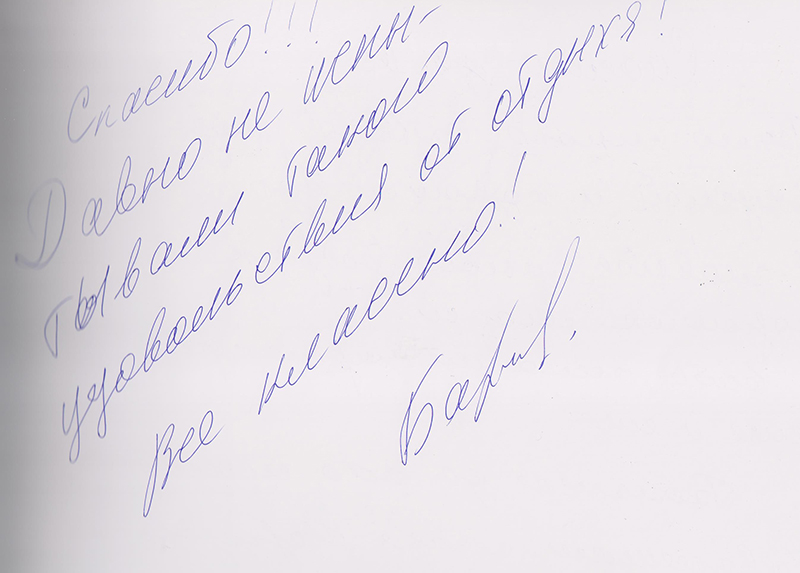 Спасибо!!!
Давно не испы-
тывали такого
удовольствия от отдыха!
Все классно!